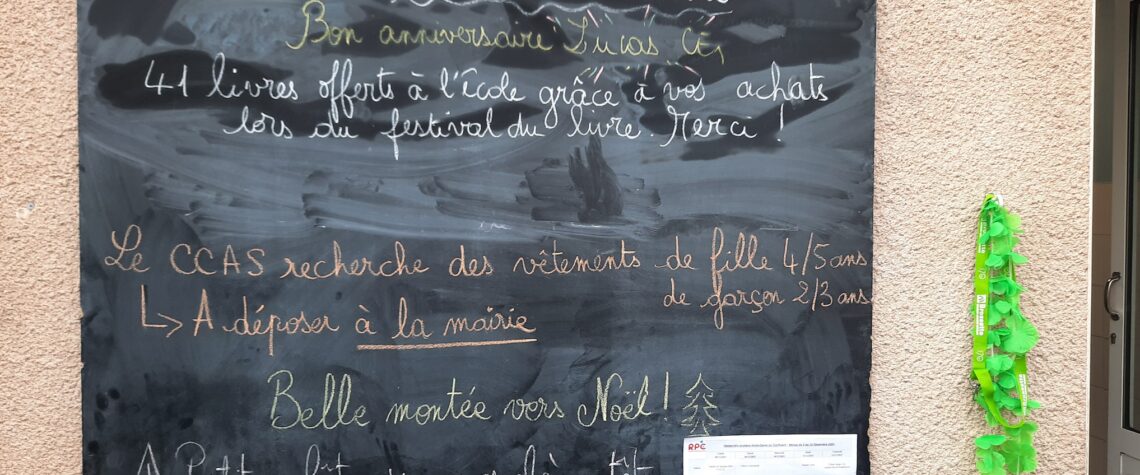 Bon anniversaire Lucas CE1
41 livres offerts à l'École grâce à vos achats
lors du festival du livre. Merci !
Le CCAS recherche des vêtements de fille 4/5 ans
de garçon 2/3 ans
↳ A déposer à la mairie
Belle montée vers Noël !
RPC